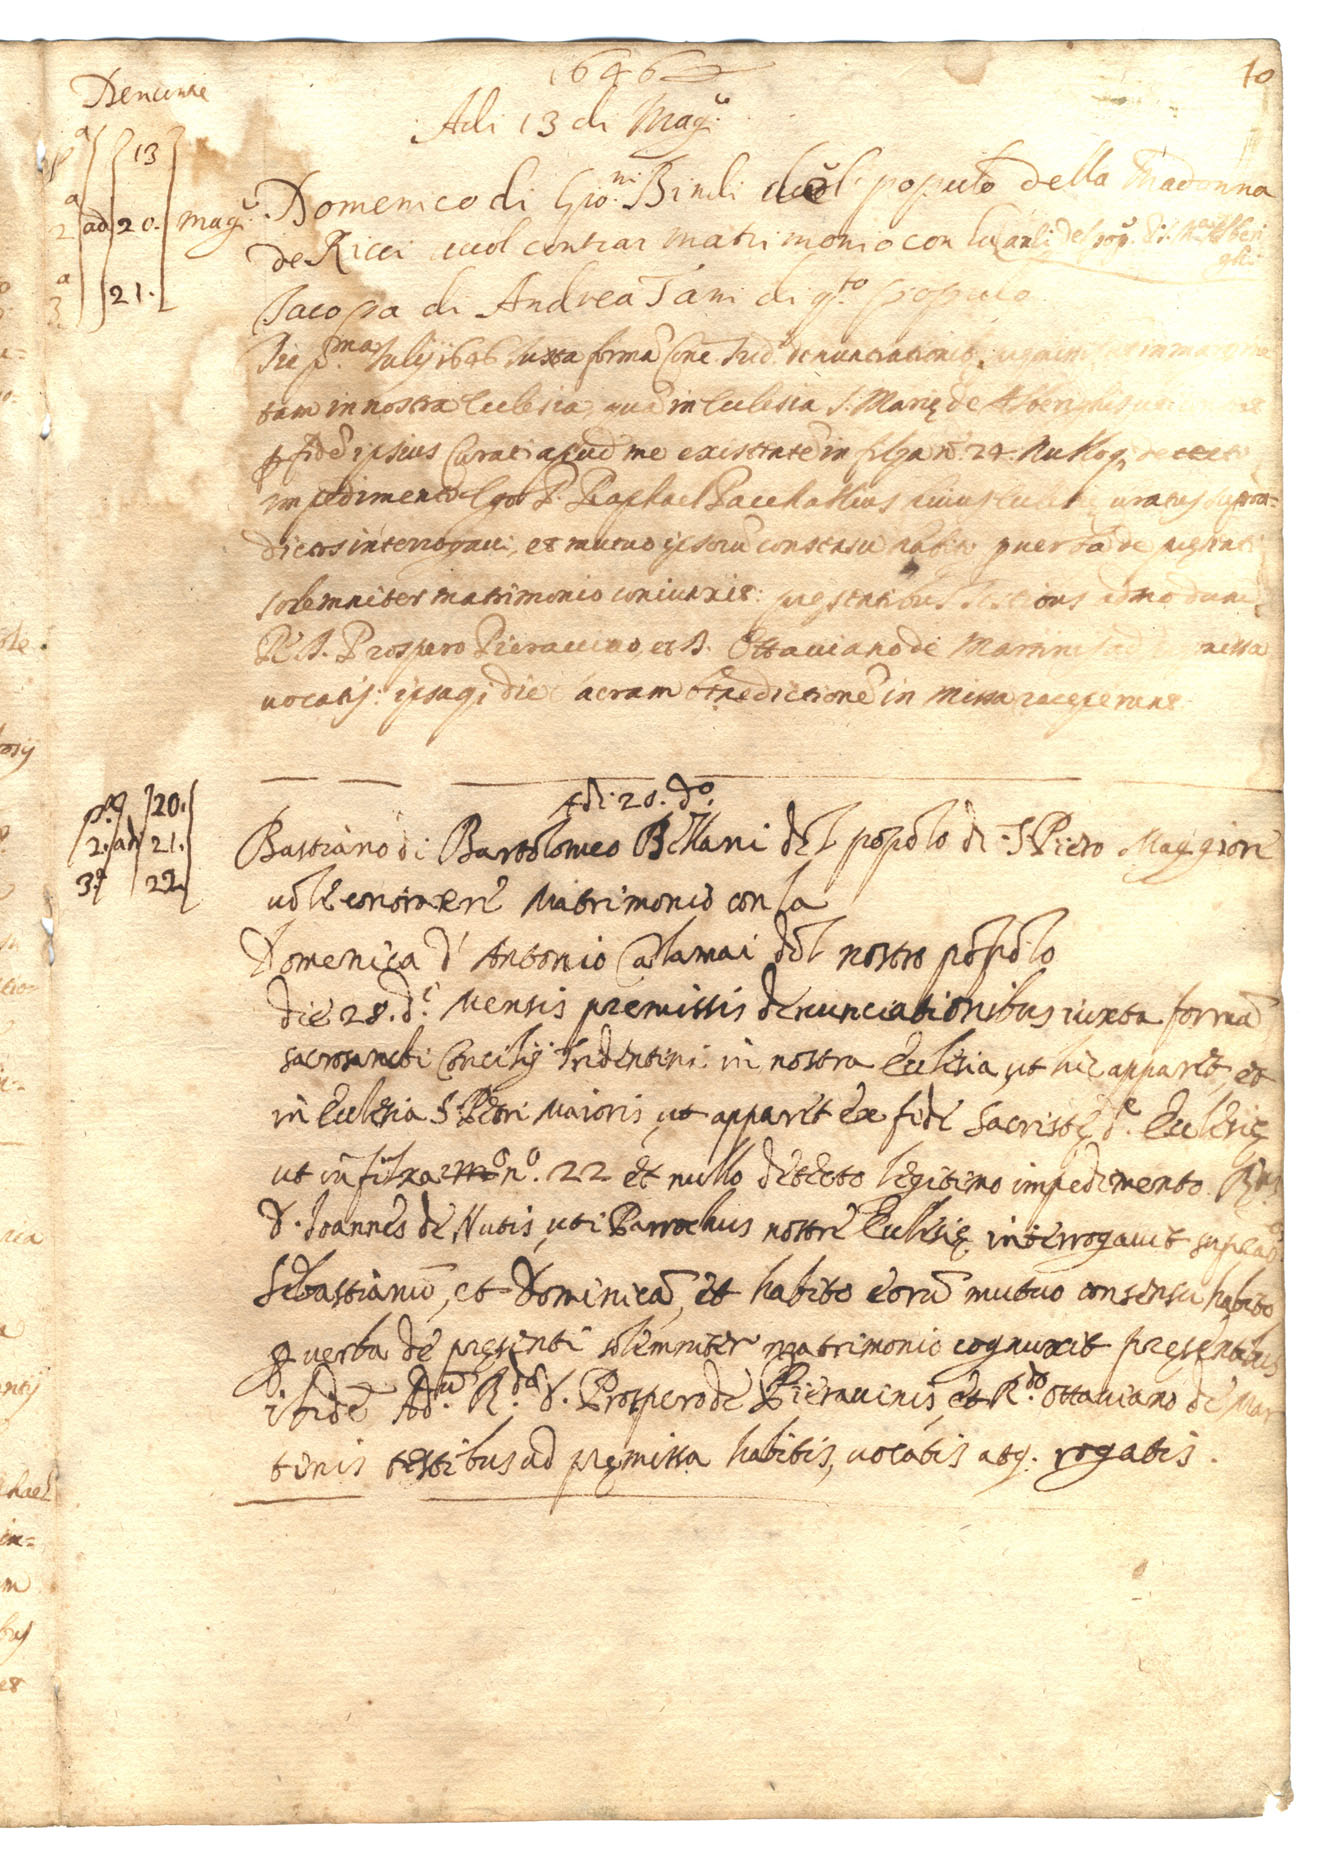 1646
10
Denunzie
Adi 13 di Magº.
pª 13
2ª ad 20. magº.
3ª 21.
Domenico di Gioni: Bindi del popolo della Madonna
de Ricci uuol contrar matrimonio con la
Jacopa di Andrea Tani di qto. popolo
Die pma. Julij 1646 Iuxta formã Conc. Trid. denuntiationib; in marg
tam in nostra Ecclesia, quã in Ecclesia S. Marię de Alberighis
p fidẽ ipsius Curati apud me existentẽ in filza nº. 24. Nulloq; detecto
impedimento Ego P. Raphael huius Curatus supra=
dictos interrogaui, et mutuo ipsorũ consensu habito p uerba de pręsenti
solemniter matrimonio coniunxi: pręsentibus testibus admodum
R. D. Prospero Pierauino, et D. Ottauiano de Martinis ad pręmissa
uocatis: ipsaq; die sacram benedictionẽ in missa receperunt
Adi 20. dº.
pª. 20.
2. ad 21.
3ª 22.
Bastiano di Bartolomeo Bellani del popolo di S. Piero Maggiore
uole contraere Matrimonio con la
Domenica d' Antonio Calamai del nostro popolo
die 28. di. Mensis premissis denunciationibus iuxta formã
sacrosancti Concilij Tridentini in nostra Ecclesia, ut hic apparet, et
in Ecclesia S. Petri Maioris, ut apparet ex fide Sacristę de. Ecclesię
ut in filza nº. 22 et nullo detecto legitimo impedimento. Rus.
D. Joannes de Nutis, uti Parrochus nostrę Ecclesię interrogauit suprados
Sebastianũ, et Dominicã, et habito eorũ mutuo consensu habito
p uerba de pręsenti solemniter matrimonio cognuxit presentibus
ibidẽ Adm. Rdo. D. Prospero de Pierauinis, et Rdo. Ottauiano de Mar
tinis testibus ad pręmissa habitis, uocatis atq. rogatis.